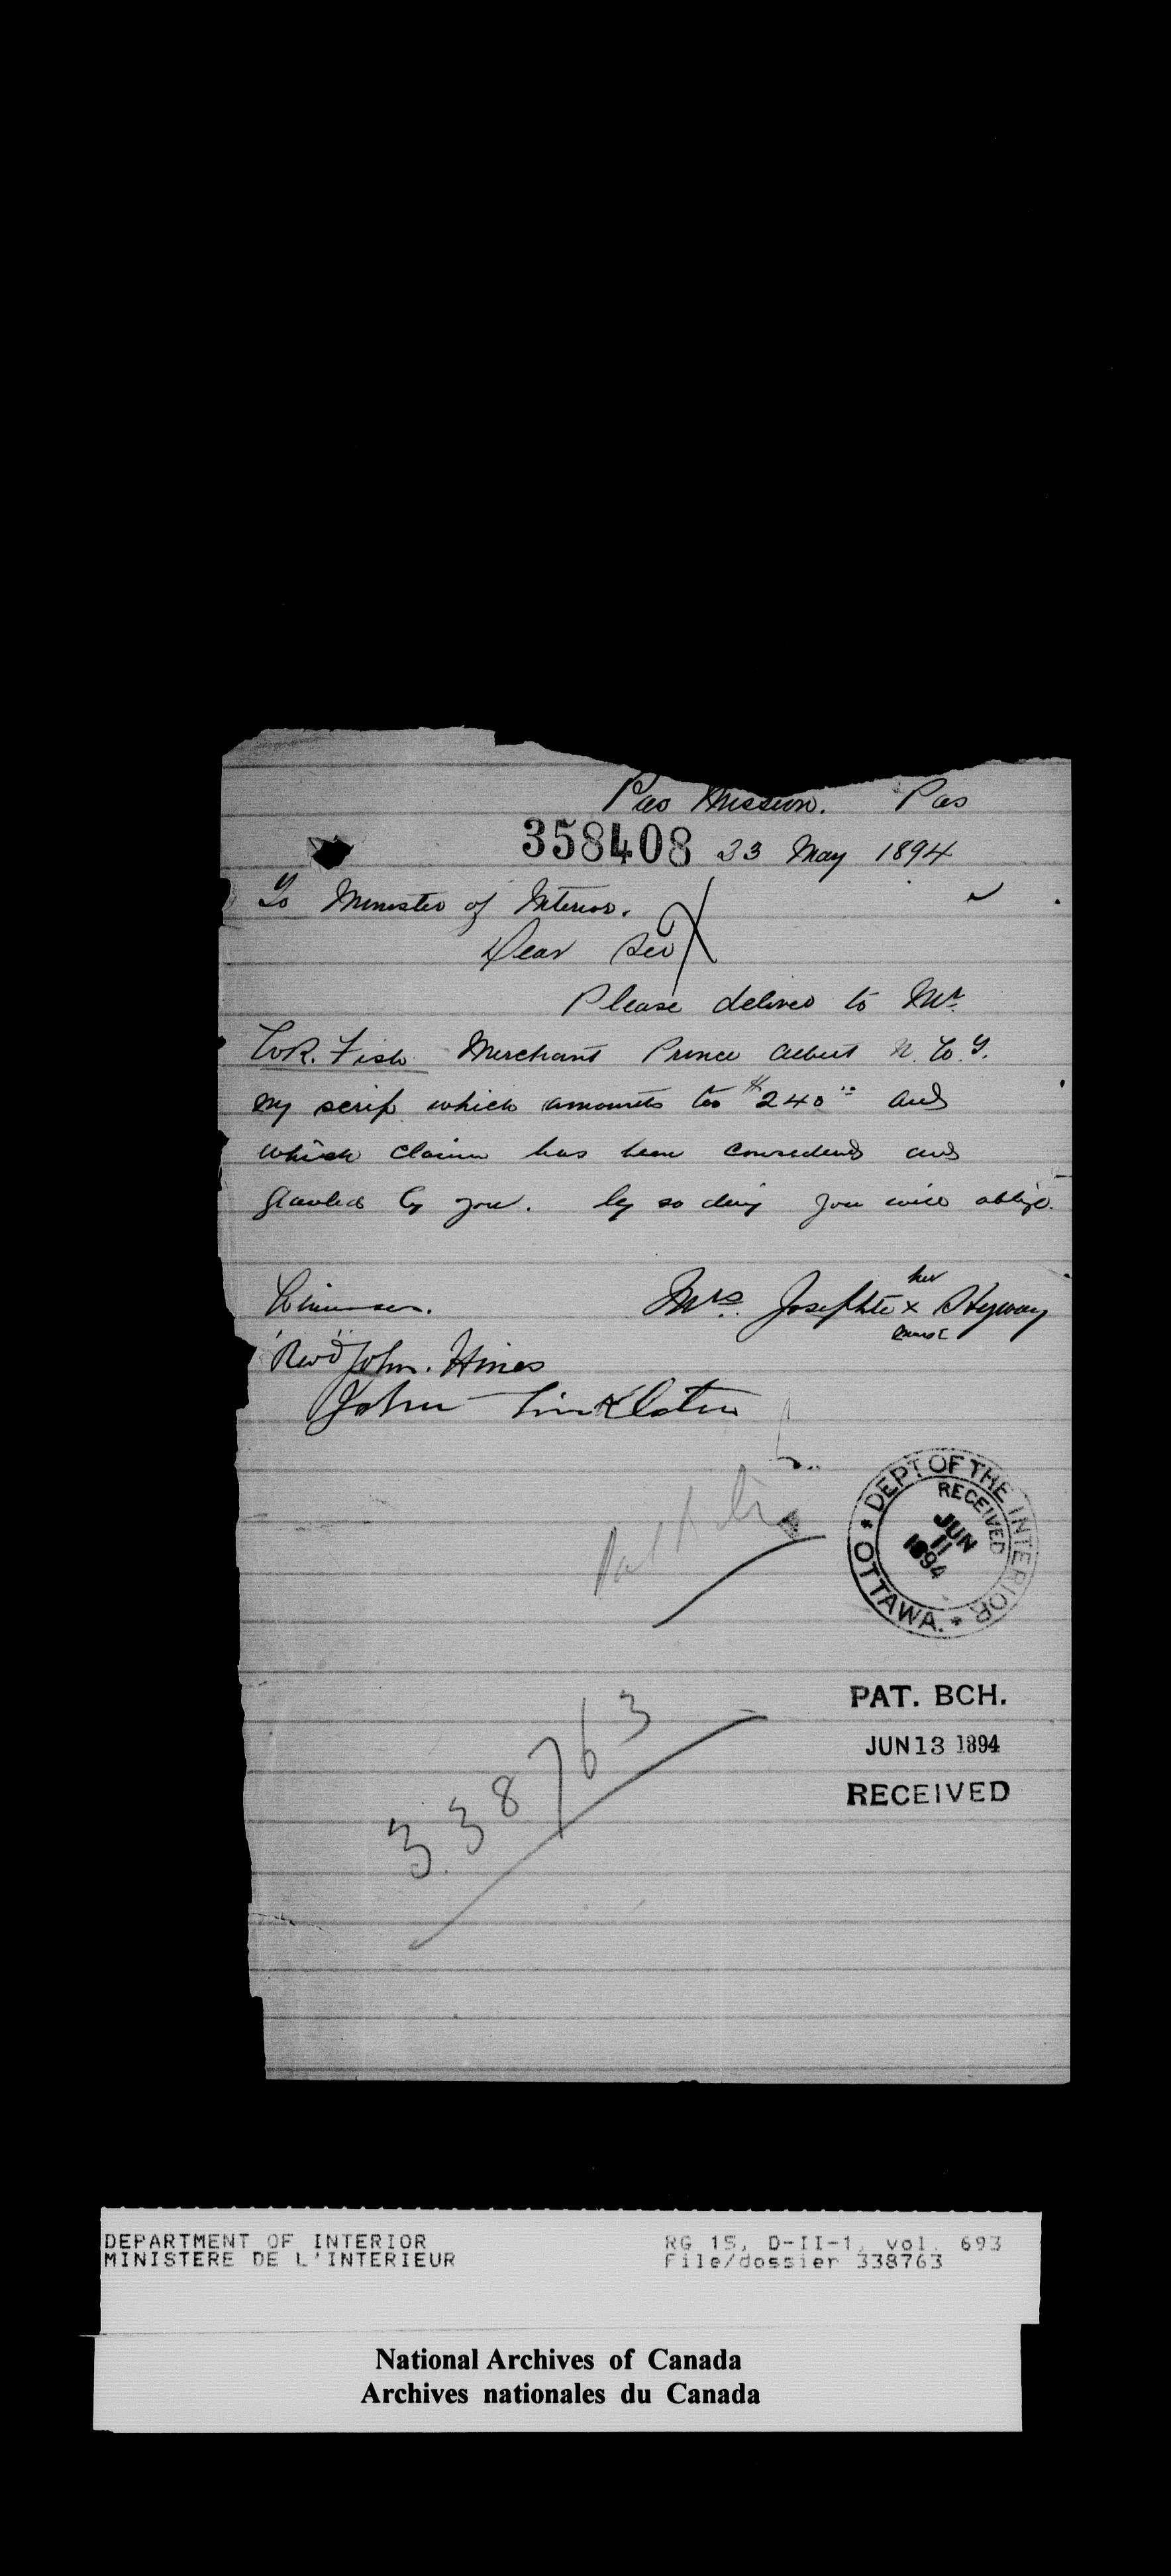 Pas Mission. Pas
358408 23 May 1894
To Minister of Interior.
Dear Sir
Please deliver to Mr.
W.R. Fish Merchant Prince Albert N. W. T.
my scrip which amounts too $240.00 and
which claim has been considered and
granted by you. by so doing you will oblige.
her
Witnesses. Mrs. Josephte x
mark
Revd John. Hines
John Sinklater
DEPT OF THE INTERIOR
RECEIVED
JUN
11
1894
OTTAWA.
PAT. BCH.
JUN 13 1894
RECEIVED
338763
DEPARTMENT OF INTERIOR RG 15, D-II-1, vol. 693
MINISTERE DE L'INTERIEUR File/dossier 338763
National Archives of Canada
Archives nationales du Canada